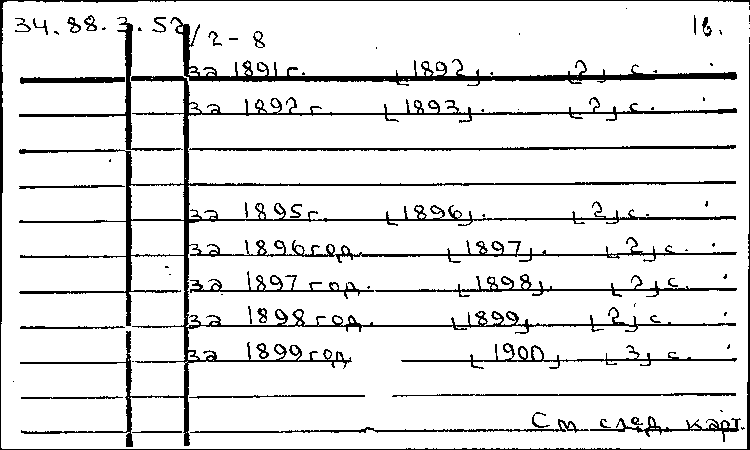 34.88.3.52/2-8 1б.
за 1891г. [1892]. [2] с.
за 1892г. [1893]. [2] с.
за 1895г. [1896]. [2] с.
за 1896год. [1897]. [2] с.
за 1897 год. [1898]. [2] с.
за 1898 год. [1899]. [2] с.
за 1899 год [1900] [3] с.
См след. карт.